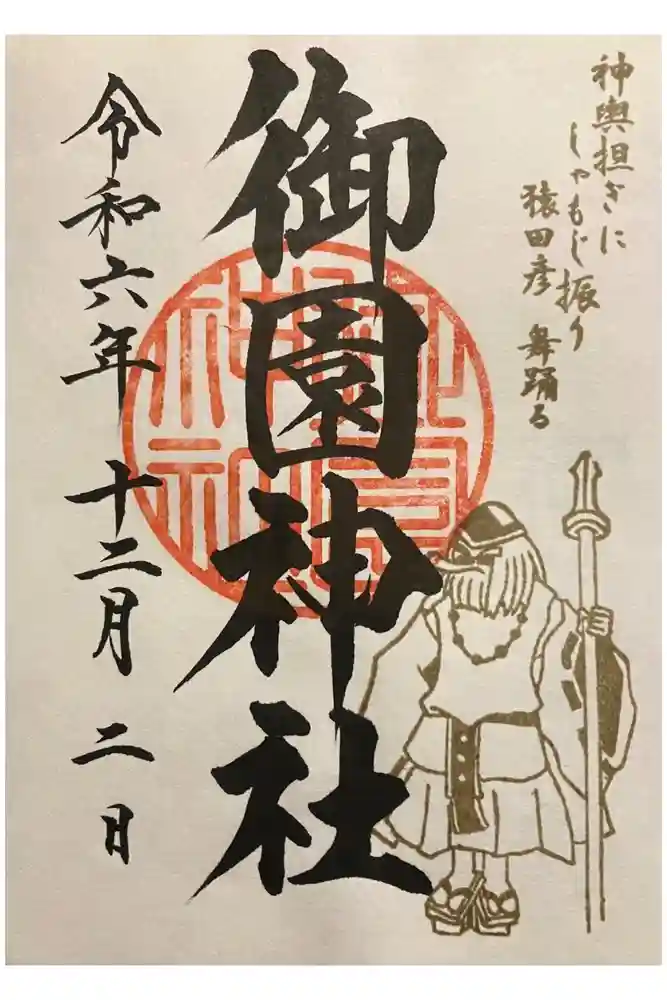 神輿担ぎに
しゃもじ振り
猿田彦 舞踊る
御園神社
令和六年 十二月 二日